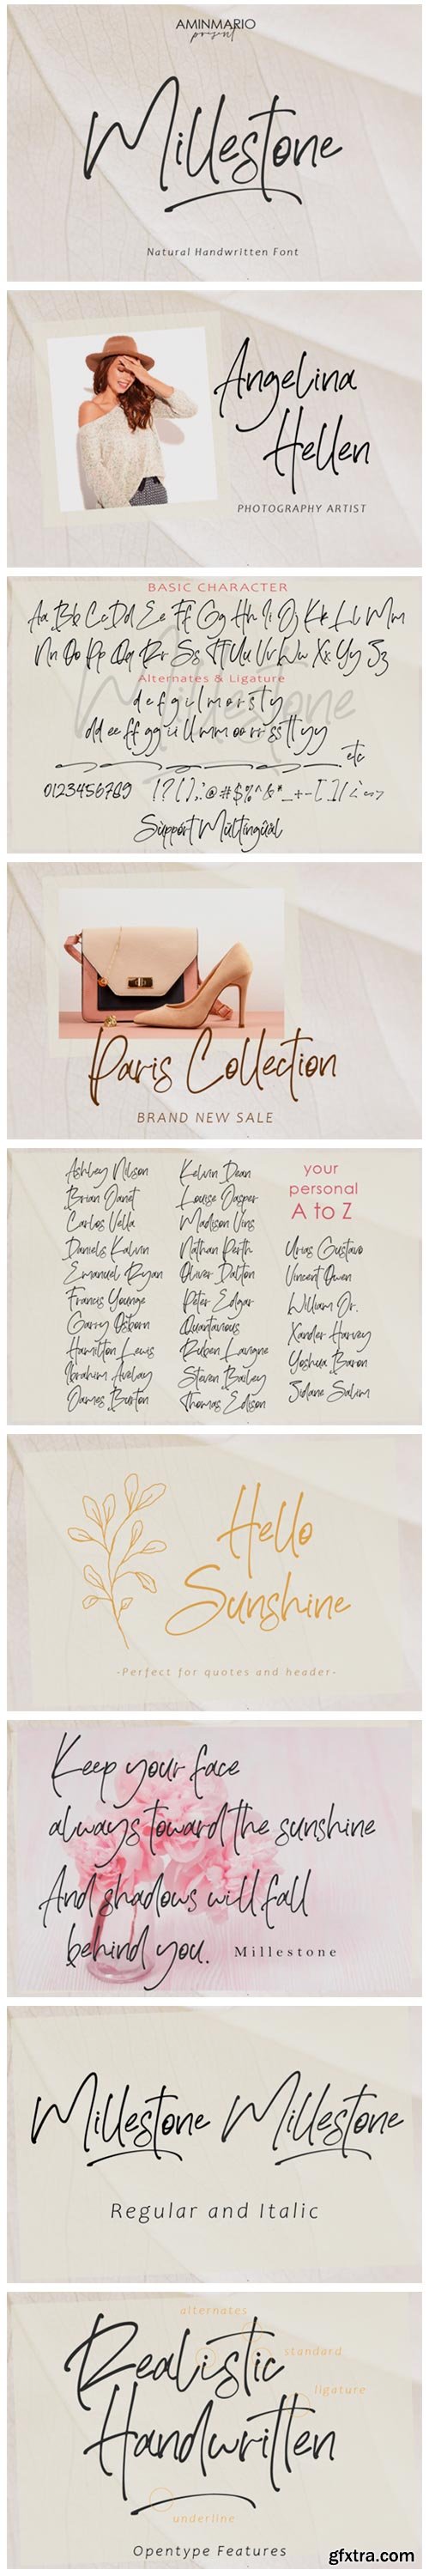 AMINMARIO
present
Millestone
Natural Handwritten Font
Angelina
Hellen
PHOTOGRAPHY ARTIST
BASIC CHARACTER
Aa Bb Cc Dd Ee Ff Gg Hh Ii Jj Kk Ll Mm
Nn Oo Pp Qq Rr Ss Tt Uu Vv Ww Xx Yy Zz
Alternates & Ligature
d e f g i l m o r s t y
dd ee ff gg ii ll mm oo rr ss tt yy
etc
0123456789
Support Multilingual
Paris Collection
BRAND NEW SALE
Ashley Nilson
Brian Janet
Carlos Vella
Daniels Kalvin
Emanuel Ryan
Francis Younge
Garry Osborn
Hamilton Lewis
Ibrahim
James Burton
Kelvin Dean
Louise Jasper
Madison Vins
Nathan Perth
Oliver Dalton
Peter Edgar
Quantavious
Ruben Lavigne
Steven Bailey
Thomas Edison
your
personal
A to Z
Urias Gustavo
Vincent Owen
William Jr.
Xander Harvey
Yoshua Baron
Zidane Salim
Hello
Sunshine
-Perfect for quotes and header-
Keep your face
always toward the sunshine
And shadows will fall
behind you.
Millestone
Millestone Millestone
Regular and Italic
alternates
Realistic
standard
ligature
Handwritten
underline
Opentype Features
gfxtra.com